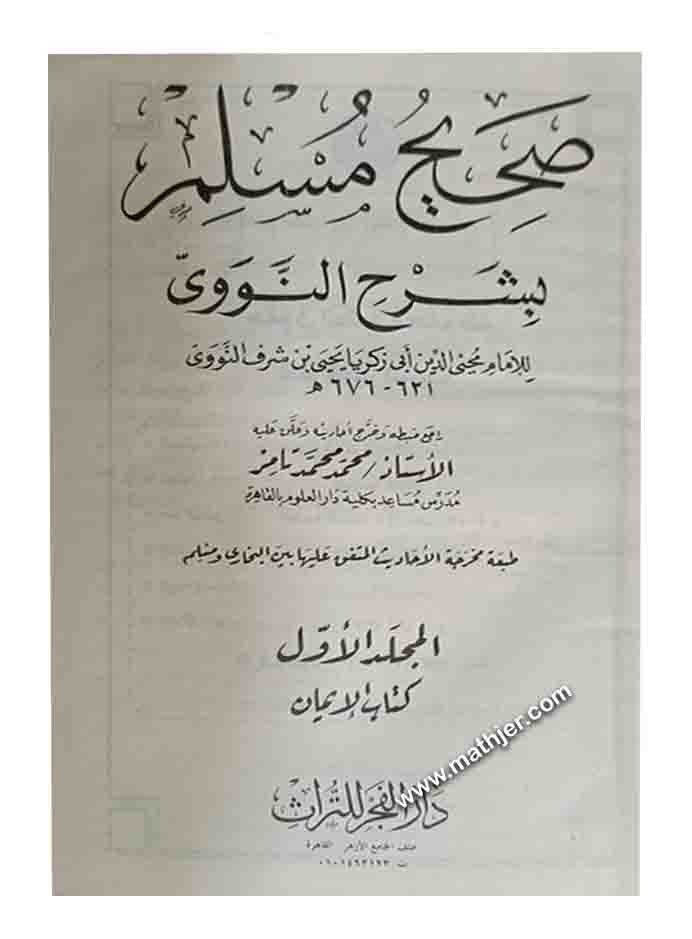 صَحِيحُ مُسْلِمْ
بِشَرْحِ النَّوَوِىّ
لِلإمَامِ مُحْيِى الدِّين أَبِى زَكَرِيَا يَحْيَى بْن شَرَف النَّوَوِى
٦٢١ - ٦٧٦ هـ
رَاجَعَ ضَبطه وَخَرَّجَ أحَاديثه وَعَلَّق عَليه
الأستاذ / محمّد محمّد تامر
مُدَرِّس مُسَاعِد بكلية دَار العلوم بالقاهرة
طبعة مخرجة الأحاديث المتفق عليها بين البخارى ومسلم
المجلد الأوّل
كتاب الإيمان
www.mathjer.com
دَار الفَجْر للتُراث
خلف الجامع الأزهر القاهرة
ت ٠١٠١٤٦٣١٩٣